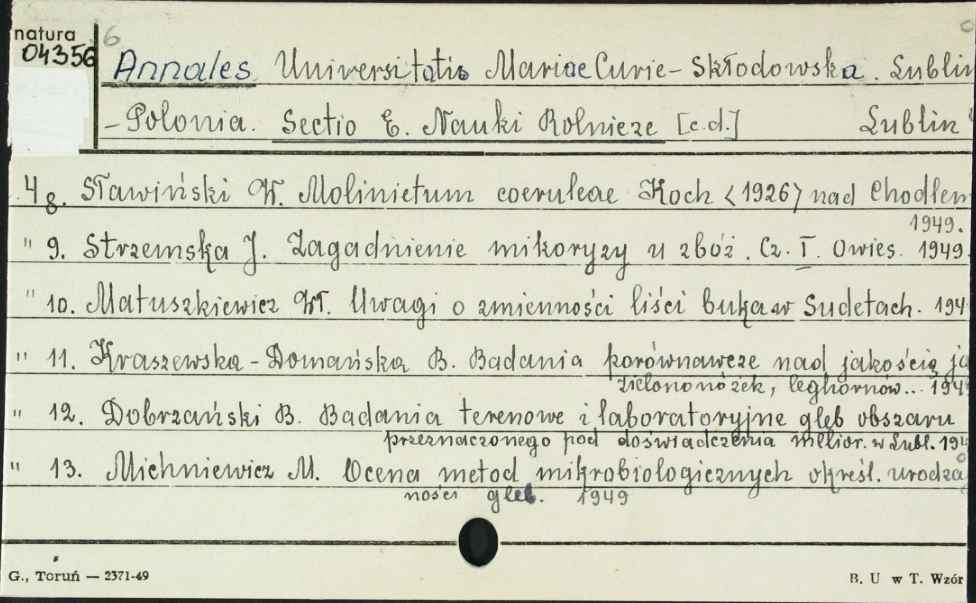 natura
04356
6
Annales Universitatis Mariae Curie-Skłodowska. Lublin
-Polonia. Sectio E. Nauki Rolnicze [c.d.] Lublin
4 8. Sławiński W. Molinietum coeruleae Koch <1926> nad Chodlem
1949.
" 9. Strzemska J. Zagadnienie mikoryzy u zbóż. Cz. I. Owies. 1949.
" 10. Matuszkiewicz Wł. Uwagi o zmienności liści buka w Sudetach. 194
" 11. Kraszewska-Domańska B. Badania porównawcze nad jakością ja
zielononóżek, leghornów... 1949
" 12. Dobrzański B. Badania terenowe i laboratoryjne gleb obszaru
przeznaczonego pod doświadczenia melior. w Lubl. 194
" 13. Michniewicz M. Ocena metod mikrobiologicznych określ. urodzaj
ności gleb. 1949
G., Toruń — 2371-49 B. U w T. Wzór